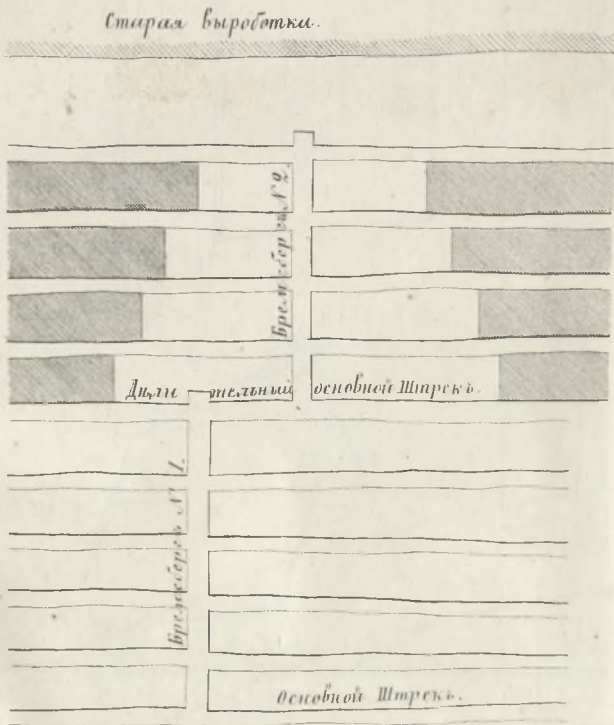 Старая выроботки.
Бремсбергъ N 2.
Дѣлительный основной Штрекъ.
Бремсбергъ N 1.
Основной Штрекъ.